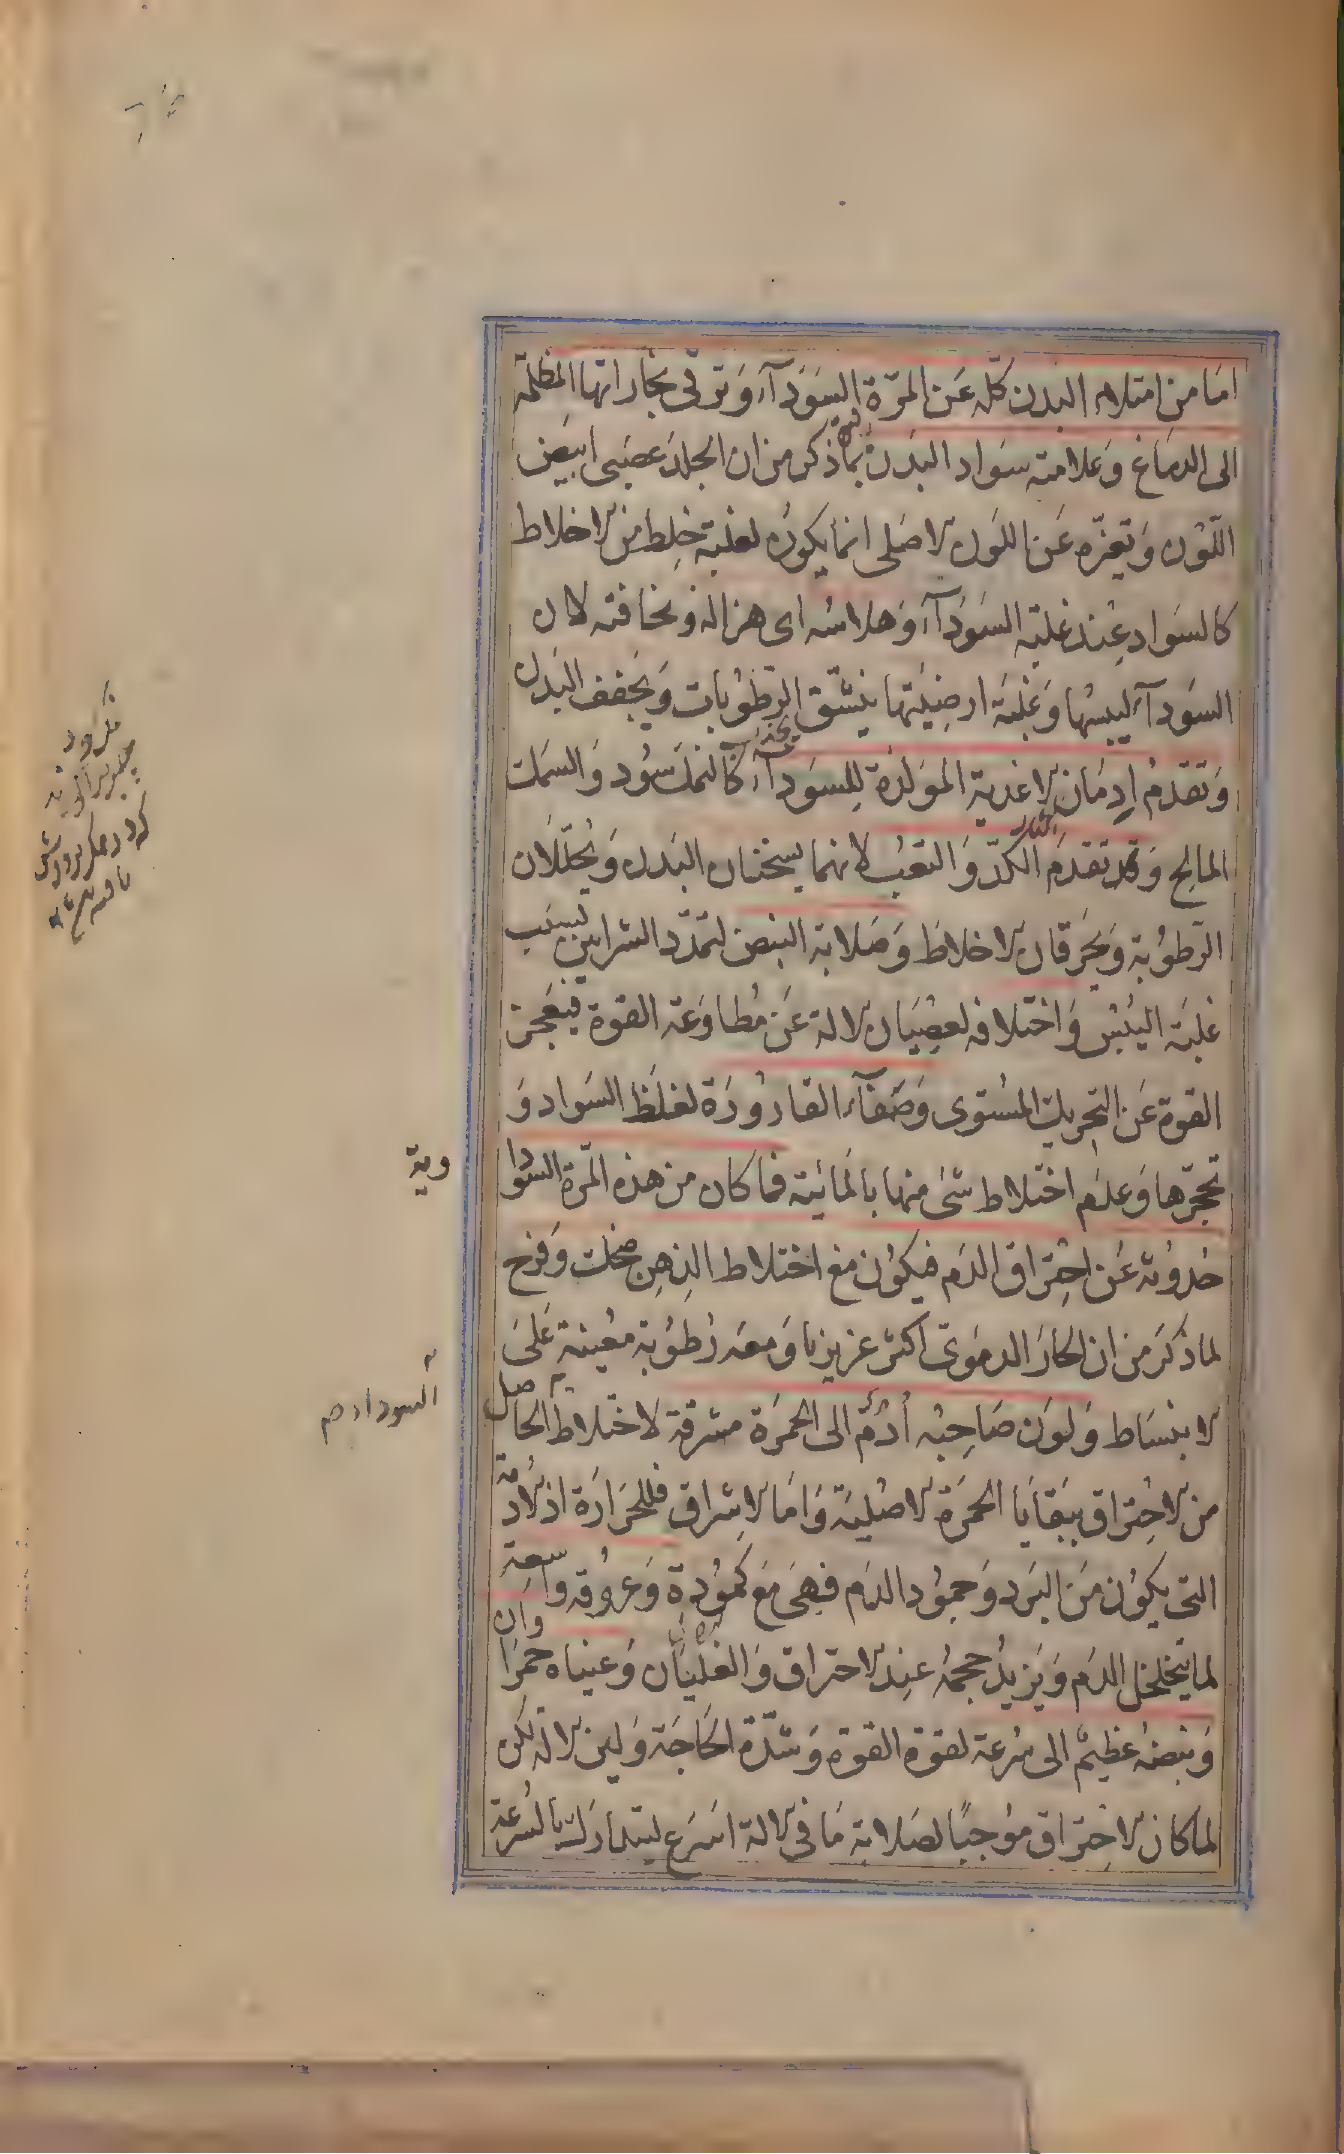 اما من امتلاء البدن كلّه عن المرّة السوَدآء وَترقى بخاراتها المظلمة
الى الدماغ وَعلامته سَواد البدَن لما ذكر من ان الجلدَ عصَبى ابيَض
اللّوُن وَتغيّره عَن اللوَن الاصَلى انما يكوُن لغلبة خِلط من الاخلاط
كالسَواد عِند غلبة السَوُدآء وَهلاسُه اى هزاله وَنحافته لان
السَودآء ليبسْها وَغلبَة ارضِيتها ينشّق الرّطوُبات وَيجفف البدَن
وَتقدمُ اِدمَان الاغدية الموَلدة للِسوَدآء كالنمكَسوُد وَالسَمك
المالح وَقد تقدمَ الكدّ وَ التعَبُ لانهما يسخنان البَدن وَيُحلّلان
الرّطوُبة وَيحَرقان الاخلاطَ وَصَلابة النبض لتمدّد الشرايين لسبَب
غلبَة اليبُسْ وَاختلافه لعصْيَان الالة عَن مُطاوَعة القوة فيعَجز
القوة عَن التحريك المسُتوى وَصَفآء القاروُرَة لغلَظ السَواد وَ
تحجّرها وَعدَم اختلاط شىْ منها بالمائية فما كان من هذه المّرة السوُدا
حُدوُثه عَن احْتراق الدَم فيكوُن مع اختلاط الذِهن ضحك وَفرح
لما ذكرَ من ان الحارَ الدموَىّ اكثر عزيزيا وَ معَه رُطوُبة معُينة عَلىَ
الا بنسَاط وَ لوَن صَاحِبْه اُدْمّ الى الحمرَة مشرقة لاختلاط الحاصل
من الاحْتراق ببَقايَا الحمرَة الاصْلية وَ امَا الاشراق فللحَرارَة اذ الادُمة
التى يكوُن منَ البرَد وَ جموُد الدَم فهىَ مَع كموُدة وَ عروُقه واسِعة
لما يتخلخل الدَم وَيزيدُ حجمهُ عنِد الاحتراق وَ الغليَان وَ عيناه حمرَاوان
وَ نبضهُ عظيمٌ الى سُرعة لقوة القوة وَ شدّة الحَاجَة وَلين الالة لكن
لما كان الاحِتراق موُجبًا لصَلابة مَا فى الالة اسَرَع ليتدارَك بالسُرعة
وية
السودا ادم